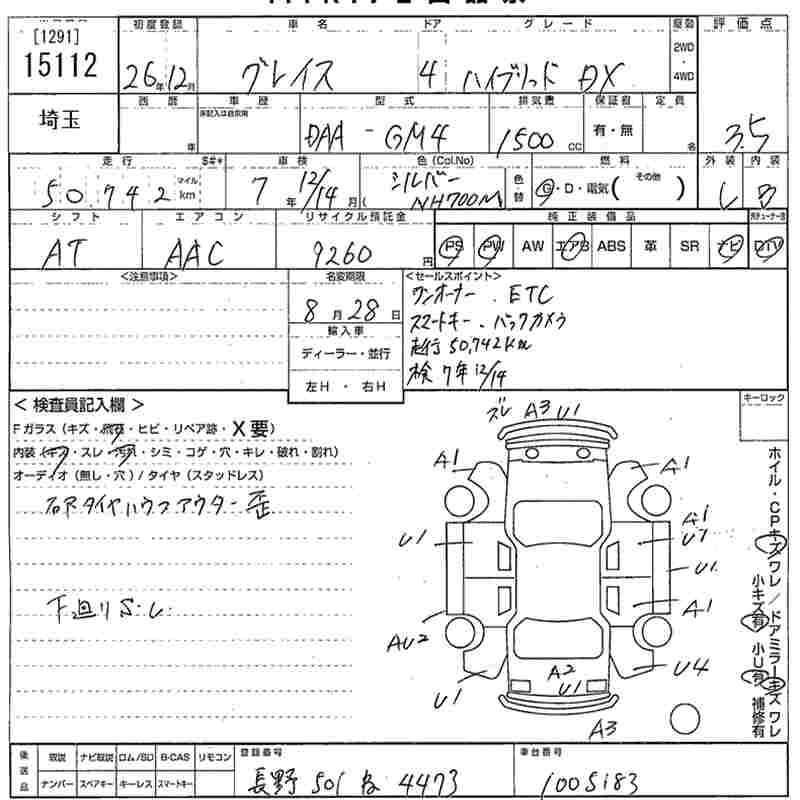 [1291]
15112
埼玉
初度登録 車名 ドア グレード 駆動 評価点
26年12月 グレイス 4 ハイブリッド DX 2WD・4WD 3.5
西暦 車歴 型式 排気量 保証書 定員
年 DAA-GM4 1500cc 有・無 名
走行 $#* 車検 色(Col.No) 燃料 外装 内装
50,742 マイル km 7年12/14月 ( シルバー NH700M 色・替 G・D・電気 ( その他 ) C B
シフト エアコン リサイクル預託金 純正装備品
AT AAC 9260円 PS PW AW エアB ABS 革 SR ナビ DTV
<注意事項> 名変期限 <セールスポイント>
8月28日
輸入車
ディーラー・並行
左H・右H
ワンオーナー. ETC
スマートキー. バックカメラ
走行 50,742km
検 7年12/14
< 検査員記入欄 >
Fガラス (キズ・飛石・ヒビ・リペア跡・X要)
内装 (キズ・スレ・汚れ・シミ・コゲ・穴・キレ・破れ・割れ)
オーディオ (無し・穴) / タイヤ (スタッドレス)
右Rタイヤハウスアウター歪
下廻りS.C.
キーロック
ズレ A3 U1
A1 A1
A1
U1 U7
U1
A1
AU2
U1 A2 U1 U4
A3
ホイル・CPキズワレ/ドアミラーキズワレ
小キズ有 小U有 補修有
後送品 取説 ナビ取説 ロム/SD B-CAS リモコン 登録番号 車台番号
ナンバー スペアキー キーレス スマートキー 長野 501 な 4473 1005183